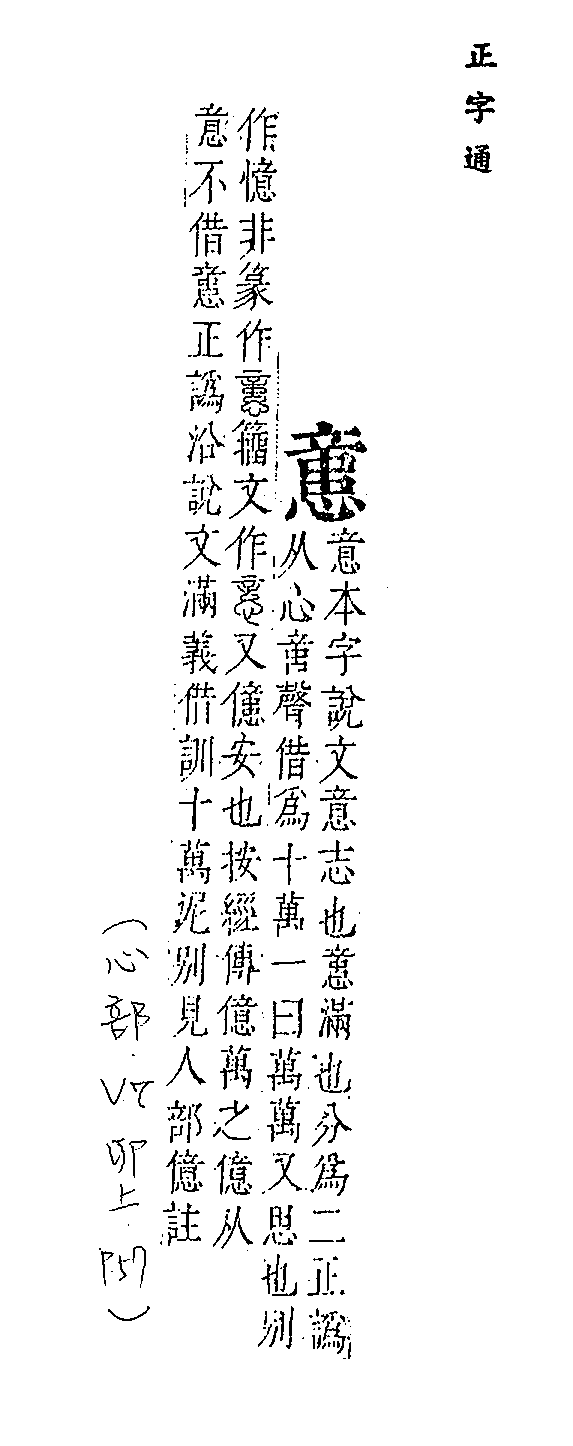 正字通
𢡃
意本字說文意志也𢡃滿也分爲二正譌
从心𠶷聲借爲十萬一曰萬萬又思也別
作憶非篆作籒文作又安也按經傳億萬之億从
意不借𢡃正譌沿說文滿義借訓十萬泥別見人部億註
(心部.V7 卯上.P57)